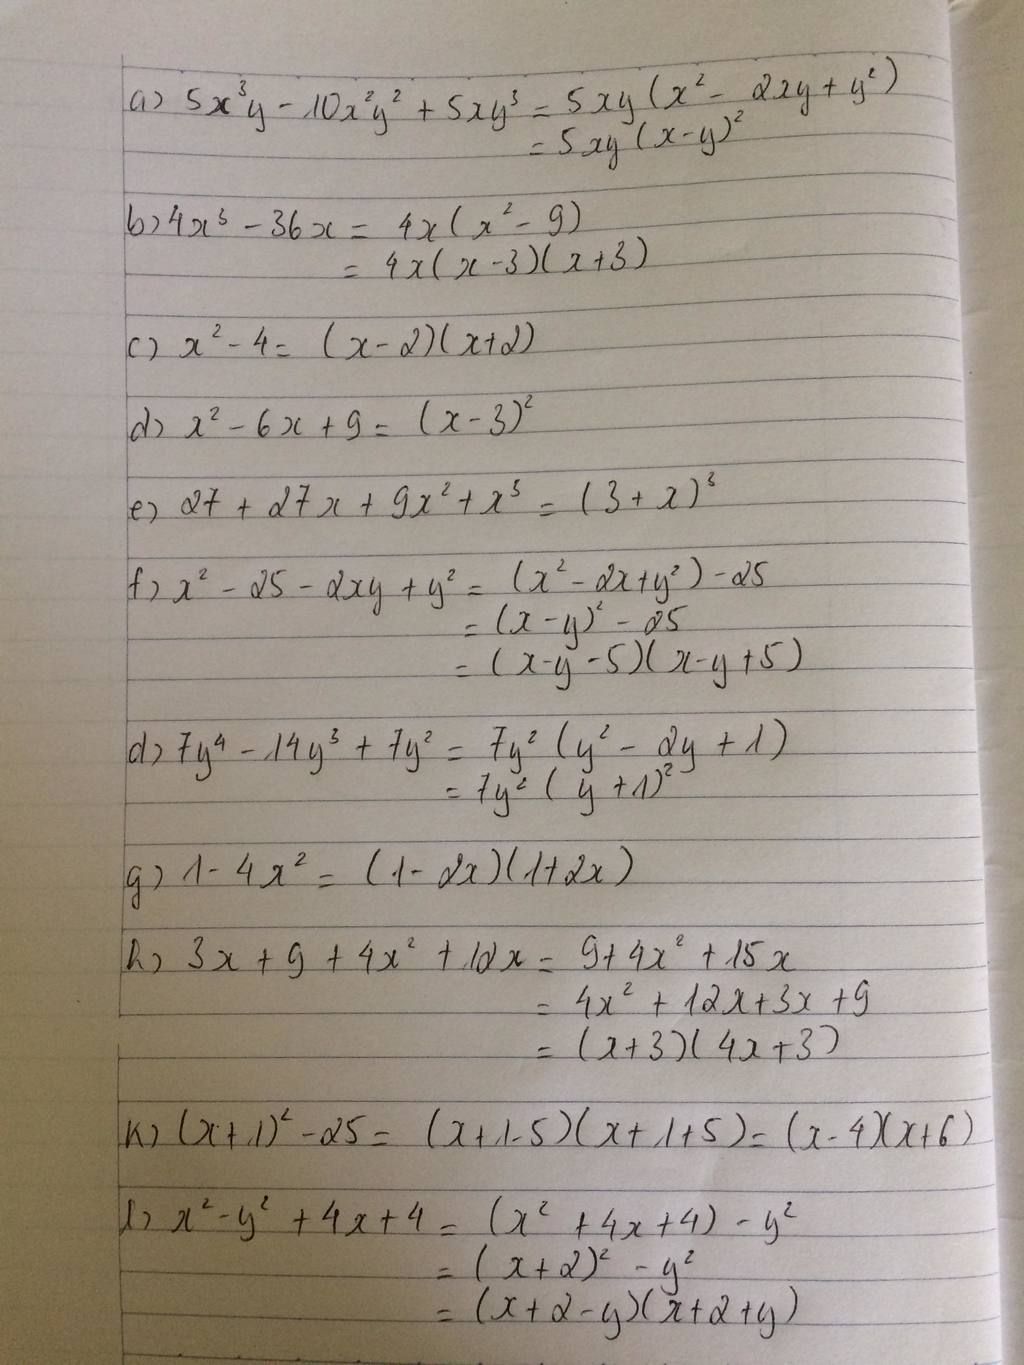 a) 5x³y - 10x²y² + 5xy³ = 5xy(x² - 2xy + y²)
= 5xy(x-y)²
b) 4x³ - 36x = 4x(x² - 9)
= 4x(x-3)(x+3)
c) x² - 4 = (x-2)(x+2)
d) x² - 6x + 9 = (x-3)²
e) 27 + 27x + 9x² + x³ = (3+x)³
f) x² - 25 - 2xy + y² = (x² - 2x + y²) - 25
= (x-y)² - 25
= (x-y-5)(x-y+5)
d) 7y⁴ - 14y³ + 7y² = 7y²(y² - 2y + 1)
= 7y²(y+1)²
g) 1 - 4x² = (1-2x)(1+2x)
h) 3x + 9 + 4x² + 12x = 9 + 4x² + 15x
= 4x² + 12x + 3x + 9
= (x+3)(4x+3)
k) (x+1)² - 25 = (x+1-5)(x+1+5) = (x-4)(x+6)
l) x² - y² + 4x + 4 = (x² + 4x + 4) - y²
= (x+2)² - y²
= (x+2-y)(x+2+y)